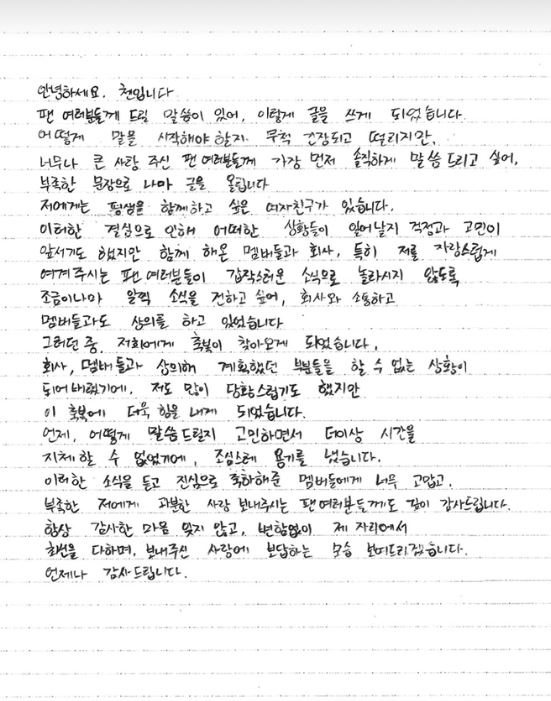 안녕하세요. 첸입니다
팬 여러분들께 드릴 말씀이 있어, 이렇게 글을 쓰게 되었습니다
어떻게 말을 시작해야 할지 무척 긴장되고 떨리지만,
너무나 큰 사랑 주신 팬 여러분들께 가장 먼저 솔직하게 말씀드리고 싶어,
부족한 문장으로 나마 글을 올립니다
저에게는 평생을 함께하고 싶은 여자친구가 있습니다.
이러한 결심으로 인해 어떠한 상황들이 일어날지 걱정과 고민이
앞서기도 했지만 함께 해온 멤버들과 회사, 특히 저를 자랑스럽게
여겨주시는 팬 여러분들이 갑작스러운 소식으로 놀라시지 않도록
조금이나마 일찍 소식을 전하고 싶어, 회사와 소통하고
멤버들과도 상의를 하고 있었습니다
그러던 중. 저희에게 축복이 찾아오게 되었습니다.
회사, 멤버들과 상의해 계획했던 부분들을 할 수 없는 상황이
되어버렸기에, 저도 많이 당황스럽기도 했지만
이 축복에 더욱 힘을 내게 되었습니다.
언제, 어떻게 말씀드릴지 고민하면서 더이상 시간을
지체할 수 없었기에, 조심스레 용기를 냈습니다.
이러한 소식을 듣고 진심으로 축하해준 멤버들에게 너무 고맙고,
부족한 저에게 과분한 사랑 보내주시는 팬 여러분들께도 깊이 감사드립니다.
항상 감사한 마음 잊지 않고, 변함없이 제 자리에서
최선을 다하며, 보내주신 사랑에 보답하는 모습 보여드리겠습니다.
언제나 감사드립니다.